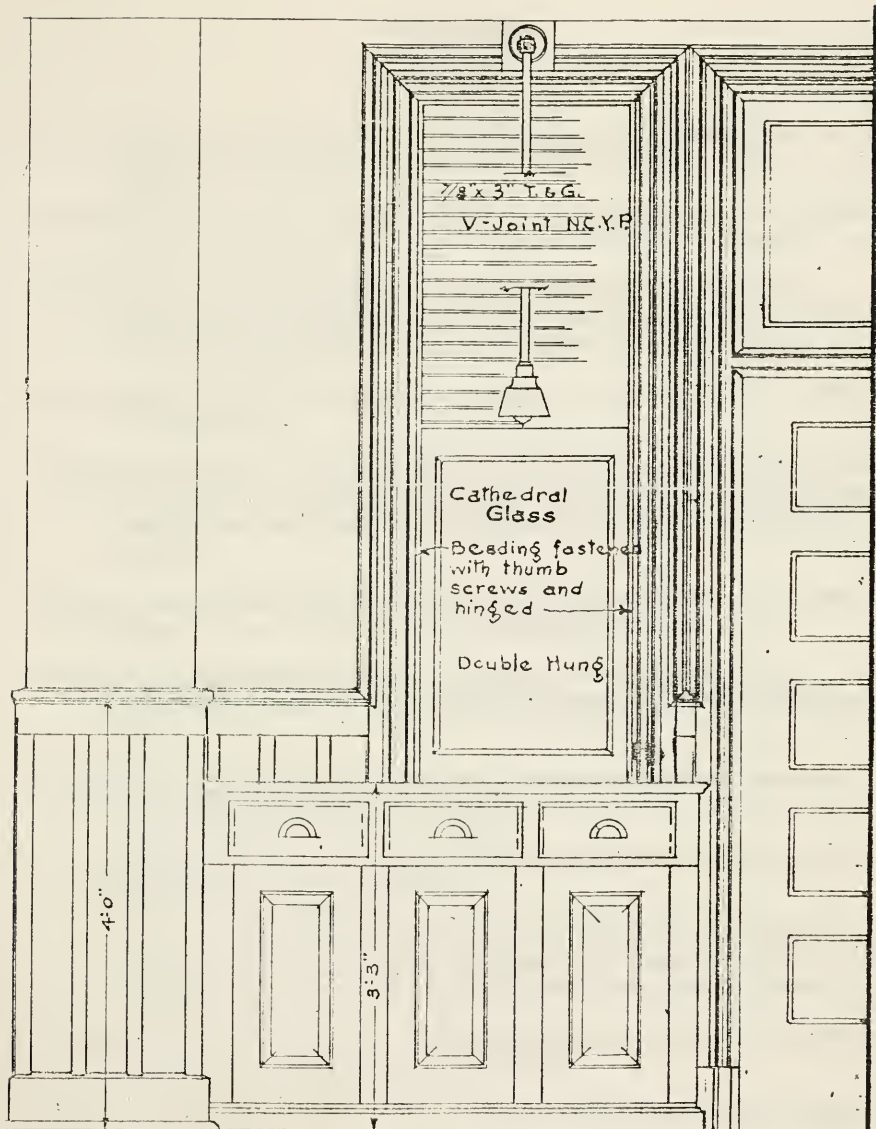 7/8" x 3" T. & G.
V-Joint N.C.Y.P.
Cathedral
Glass
Beading fastened
with thumb
screws and
hinged
Double Hung
4'-0"
3'-3"